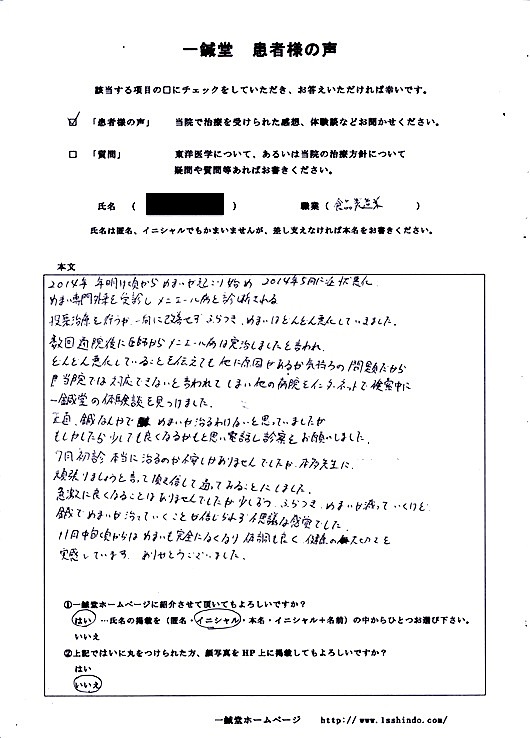 一鍼堂 患者様の声
該当する項目の□にチェックをしていただき、お答えいただければ幸いです。
☑ 「患者様の声」 当院で治療を受けられた感想、体験談などお聞かせください。
□ 「質問」 東洋医学について、あるいは当院の治療方針について
疑問や質問等あればお書きください。
氏名 ( ) 職業 ( 食品製造業 )
氏名は匿名、イニシャルでもかまいませんが、差し支えなければ本名をお書きください。
本文
2014年 年明け頃からめまいが起こり始め 2014年5月に症状悪化
めまい専門外来を受診しメニエール病と診断される
投薬治療を行うが一向に改善せずふらつき、めまいはどんどん悪化していきました。
数回通院後に医師からメニエール病は完治しましたと言われ
どんどん悪化していることを伝えても他に原因があるか気持ちの問題だから
当院では対応できないと言われてしまい他の病院をインターネットで検索中に
一鍼堂の体験談を見つけました。
正直、鍼なんかで めまいが治るわけないと思っていましたが
もしかしたら少しでも良くなるかもと思い電話し診察をお願いしました。
7月初診 本当に治るのか不安しかありませんでしたが 先生に
頑張りましょうと言って頂き信じて通ってみることにしました。
急激に良くなることはありませんでしたが少しずつ、ふらつき、めまいが減っていくけど
鍼でめまいが治っていくことが信じられず不思議な感覚でした。
11月中旬頃からはめまいも完全になくなり体調も良く 健康の 大切さを
実感しています。ありがとうございました。
①一鍼堂ホームページに紹介させて頂いてもよろしいですか？
はい …氏名の掲載を（匿名・イニシャル・本名・イニシャル＋名前）の中からひとつお選び下さい。
いいえ
②上記ではいに丸をつけられた方、顔写真をHP上に掲載してもよろしいですか？
はい
いいえ
一鍼堂ホームページ http://www.1sshindo.com/